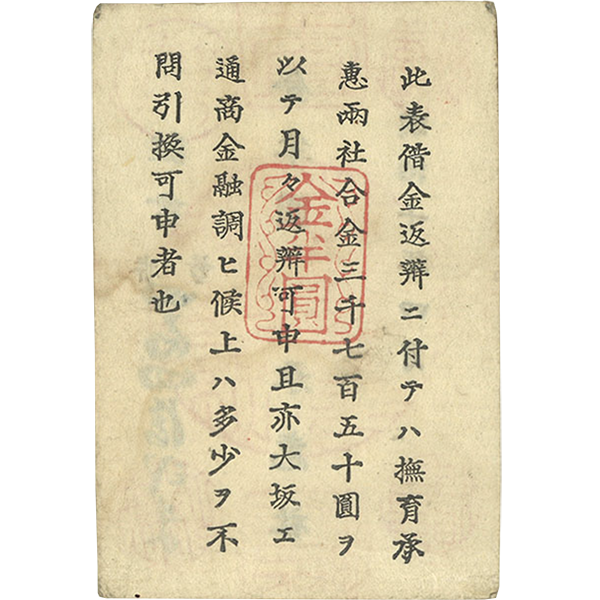 此表借金返辨ニ付テハ撫育承
惠両社合金三千七百五十圓ヲ
以テ月々返辨可申且亦大坂エ
通商金融調ヒ候上ハ多少ヲ不
問引換可申者也
金半圓